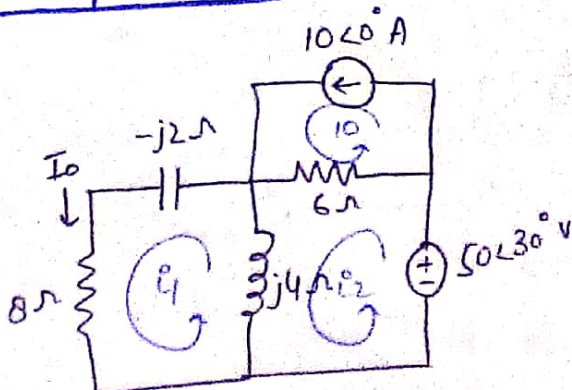 10<0° A
10
-j2 Ω
6Ω
Io
8Ω
i1
j4Ω
i2
50<30° v